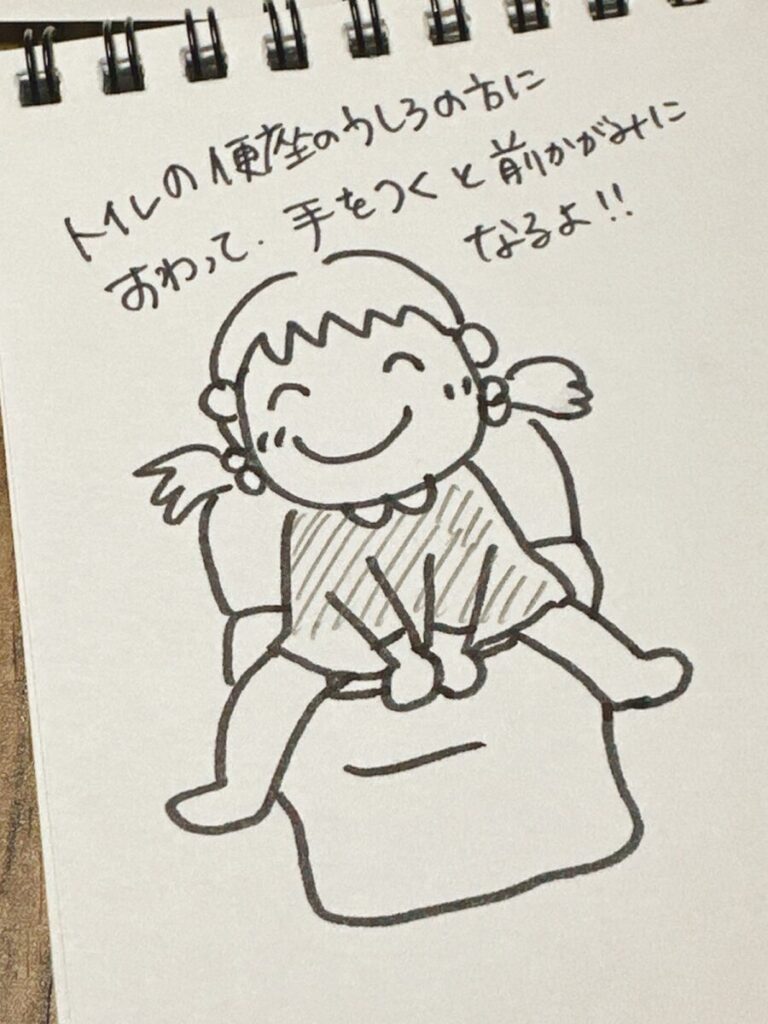 トイレの便座のうしろの方に
すわって、手をつくと前かがみに
なるよ!!